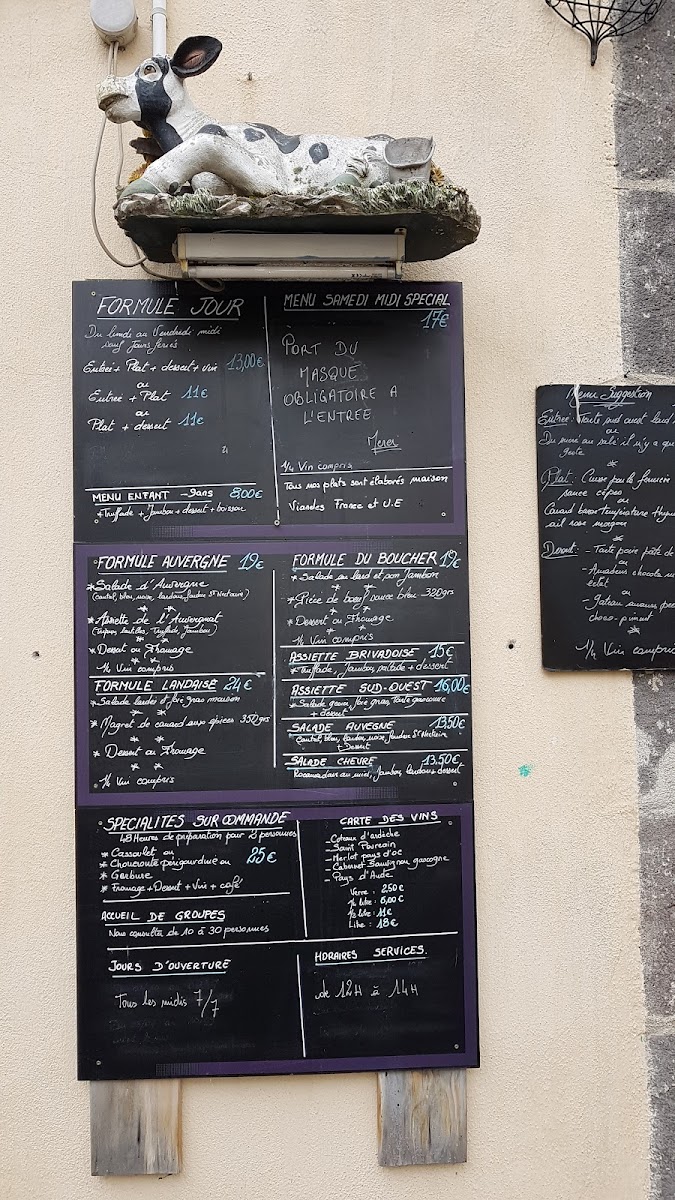 FORMULE JOUR
Du lundi au Vendredi midi
sauf jours feriés
Entrée + Plat + dessert + vin 13,00€
ou
Entrée + Plat 11€
ou
Plat + dessert 11€
MENU ENFANT -9ans 8,00€
+ Truffade + Jambon + dessert + boisson
MENU SAMEDI MIDI SPECIAL
17€
PORT DU
MASQUE
OBLIGATOIRE A
L'ENTREE
Merci
1/4 Vin compris
Tous nos plats sont élaborés maison
Viandes France et U.E
FORMULE AUVERGNE 19€
* Salade d'Auvergne
(cantal, bleu, noix, lardons, fondue St Nectaire)
* Assiette de l'Auvergnat
(Tripoux lentilles, Truffade, Jambon)
* Dessert ou Fromage
1/4 Vin compris
FORMULE LANDAISE 24€
* Salade landes et foie gras maison
* Magret de canard aux épices 350grs
* Dessert ou Fromage
1/4 Vin compris
FORMULE DU BOUCHER 19€
* Salade au lard et son Jambon
* Pièce de boeuf sauce bleu 320grs
* Dessert ou Fromage
1/4 Vin compris
ASSIETTE BRIVADOISE 15€
* Truffade, Jambon, salade + dessert
ASSIETTE SUD-OUEST 16,00€
* Salade, foie gras, Tarte gasconne
+ dessert
SALADE AUVEGNE 13.50€
Cantal, bleu, lardon, noix, fondue St Nectaire
+ Dessert
SALADE CHEVRE 13.50€
Rocamadour au miel, Jambon, lardons + dessert
SPECIALITES SUR COMMANDE
48 Heures de préparation pour 2 personnes
* Cassoulet ou
* Choucroute périgourdine ou 25€
* Garbure
* Fromage + Dessert + Vin + café
ACCUEIL DE GROUPES
Nous consulter de 10 à 30 personnes
CARTE DES VINS
_ Coteaux d'ardèche
_ Saint Pourcain
_ Merlot pays d'oc
_ Cabernet Sauvignon gascogne
_ Pays d'Aude
Verre : 2.50€
1/4 litre : 6,00€
1/2 litre : 11€
Litre : 18€
JOURS D'OUVERTURE
Tous les midis 7/7
HORAIRES SERVICES.
de 12H à 14H
Menu Suggestion
Entrée: Tarte sud ouest lard
ou
Du sucré au salé il y'a que
Plat: Cuisse poule fermière
sauce cèpes
ou
Canard basse température
ail rose
Dessert: - Tarte poire pâte de
ou
- Amadeus chocolat
éclat
ou
- Gâteau
choco-piment
1/4 Vin compris